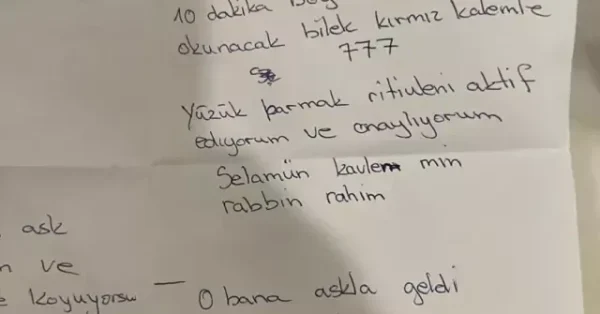 10 dakika
okunacak bilek kırmız kalemle
777
Yüzük parmak ritiuleni aktif
ediyorum ve onaylıyorum
Selamün kavlem min
rabbin rahim
ask
ve
koyuyorsu — O bana askla geldi